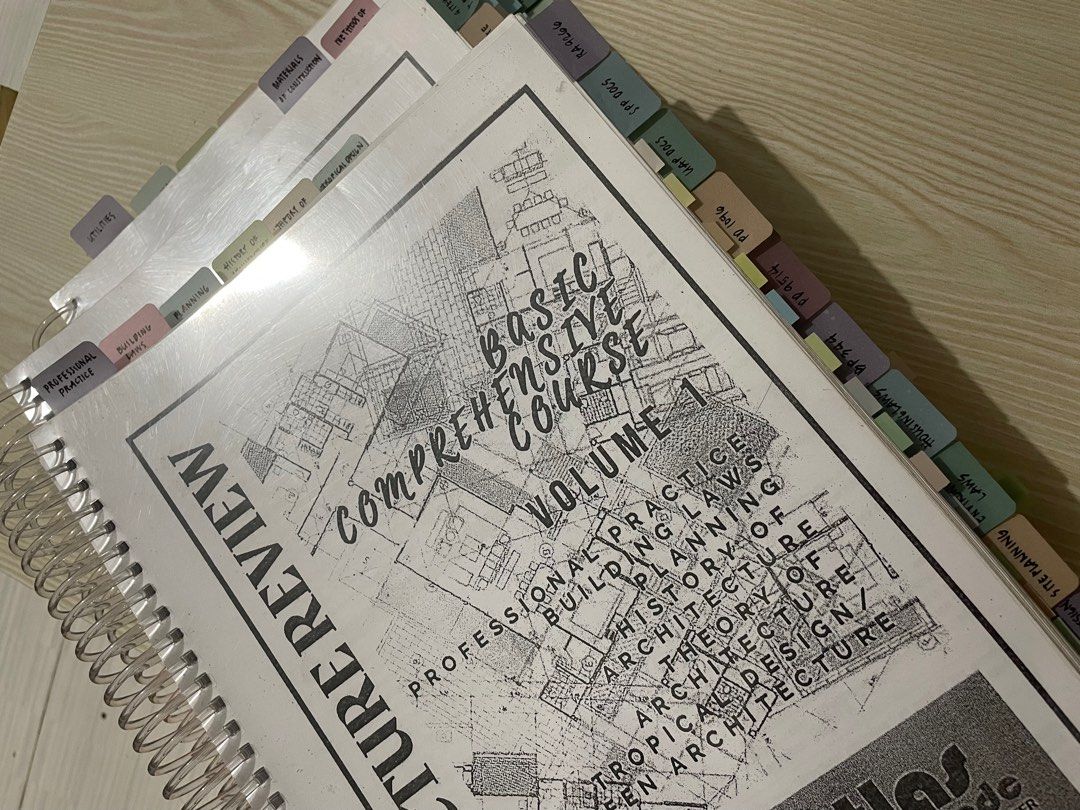 METHODS OF
MATERIALS
OF CONSTRUCTION
UTILITIES
TROPICAL DESIGN
HISTORY OF
PLANNING
BUILDING
LAWS
PROFESSIONAL
PRACTICE
RA 9266
SPP DOCS
UAP DOCS
PD 1096
PD 9514
BP 344
HOUSING LAWS
LAWS
SITE PLANNING
BASIC
COMPREHENSIVE
COURSE
VOLUME 1
PROFESSIONAL PRACTICE
BUILDING LAWS
PLANNING
HISTORY OF
ARCHITECTURE
THEORY OF
ARCHITECTURE
TROPICAL DESIGN/
EEN ARCHITECTURE
CTURE REVIEW